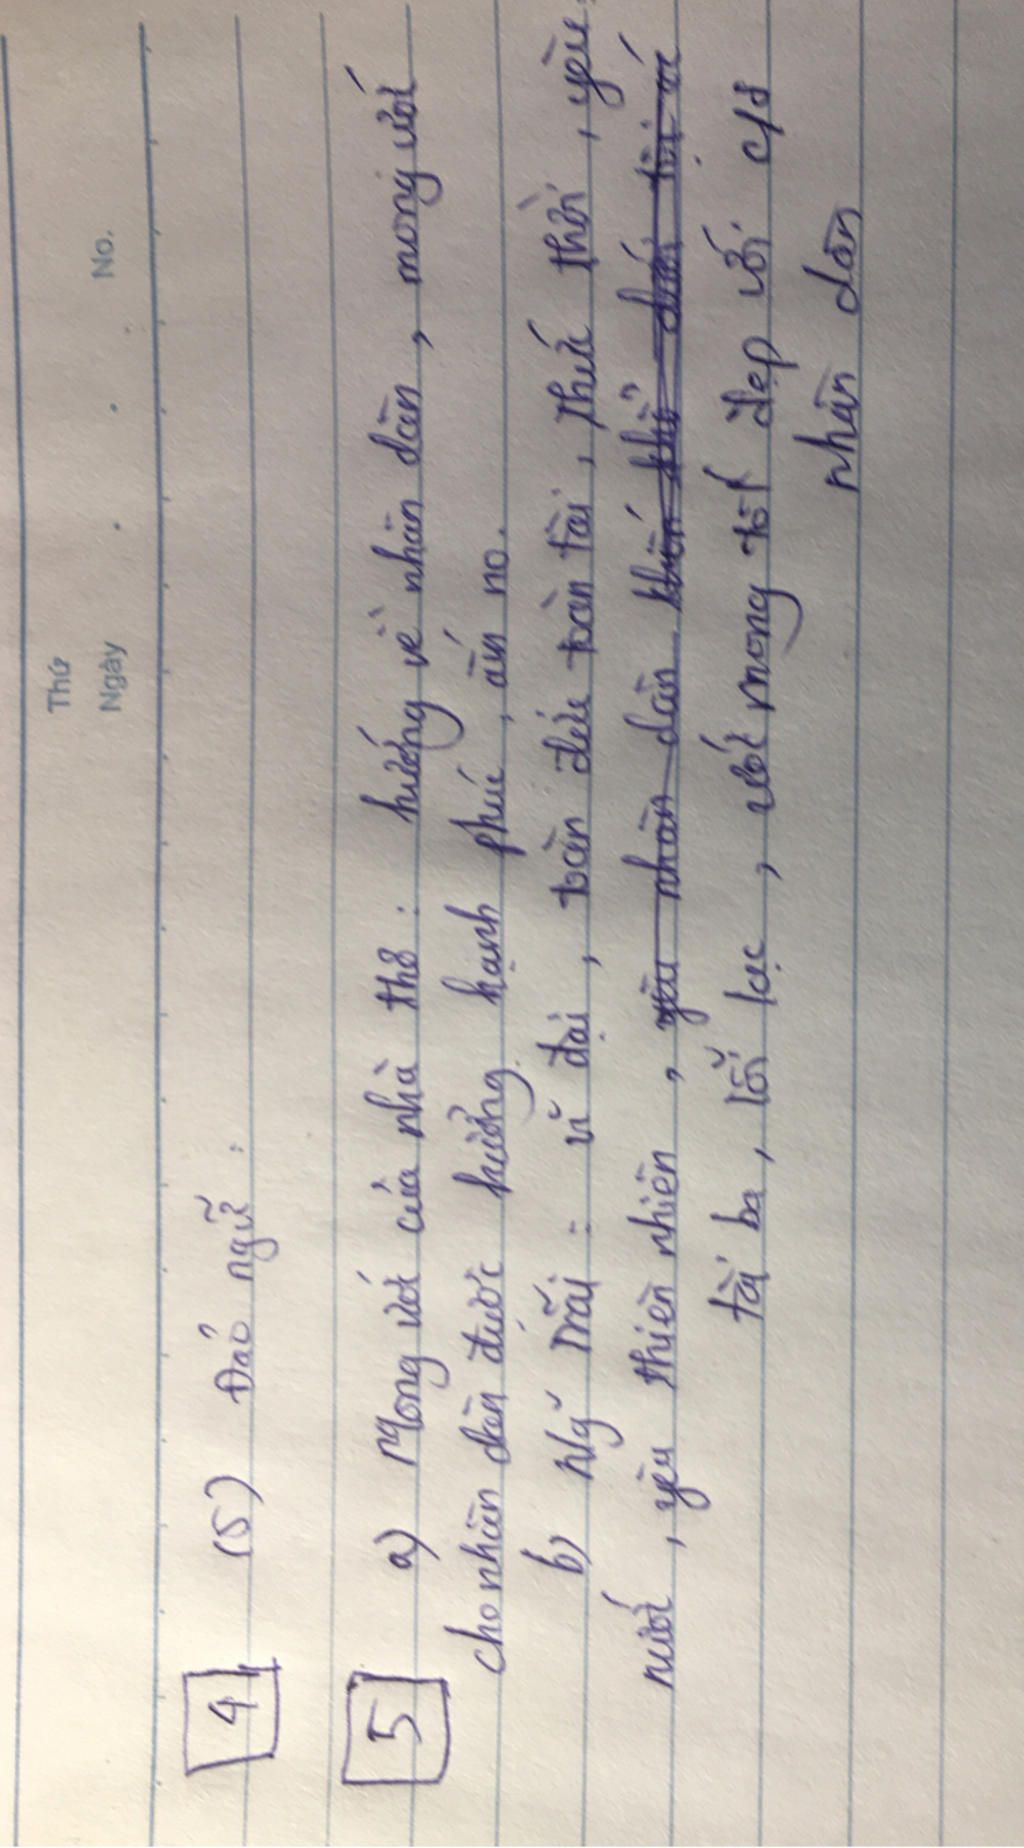 Thứ
Ngày . . . No.
4 (5) Đảo ngữ :
5 a) Mong ước của nhà thơ : hướng về nhân dân , mong ước
cho nhân dân được hưởng hạnh phúc , ấm no .
b) Ng~ Trãi : vĩ đại , toàn đức toàn tài , thức thời , yêu
nước , yêu thiên nhiên , yêu nhân dân
tài ba , lỗi lạc , ước mong tốt đẹp với c/s
nhân dân